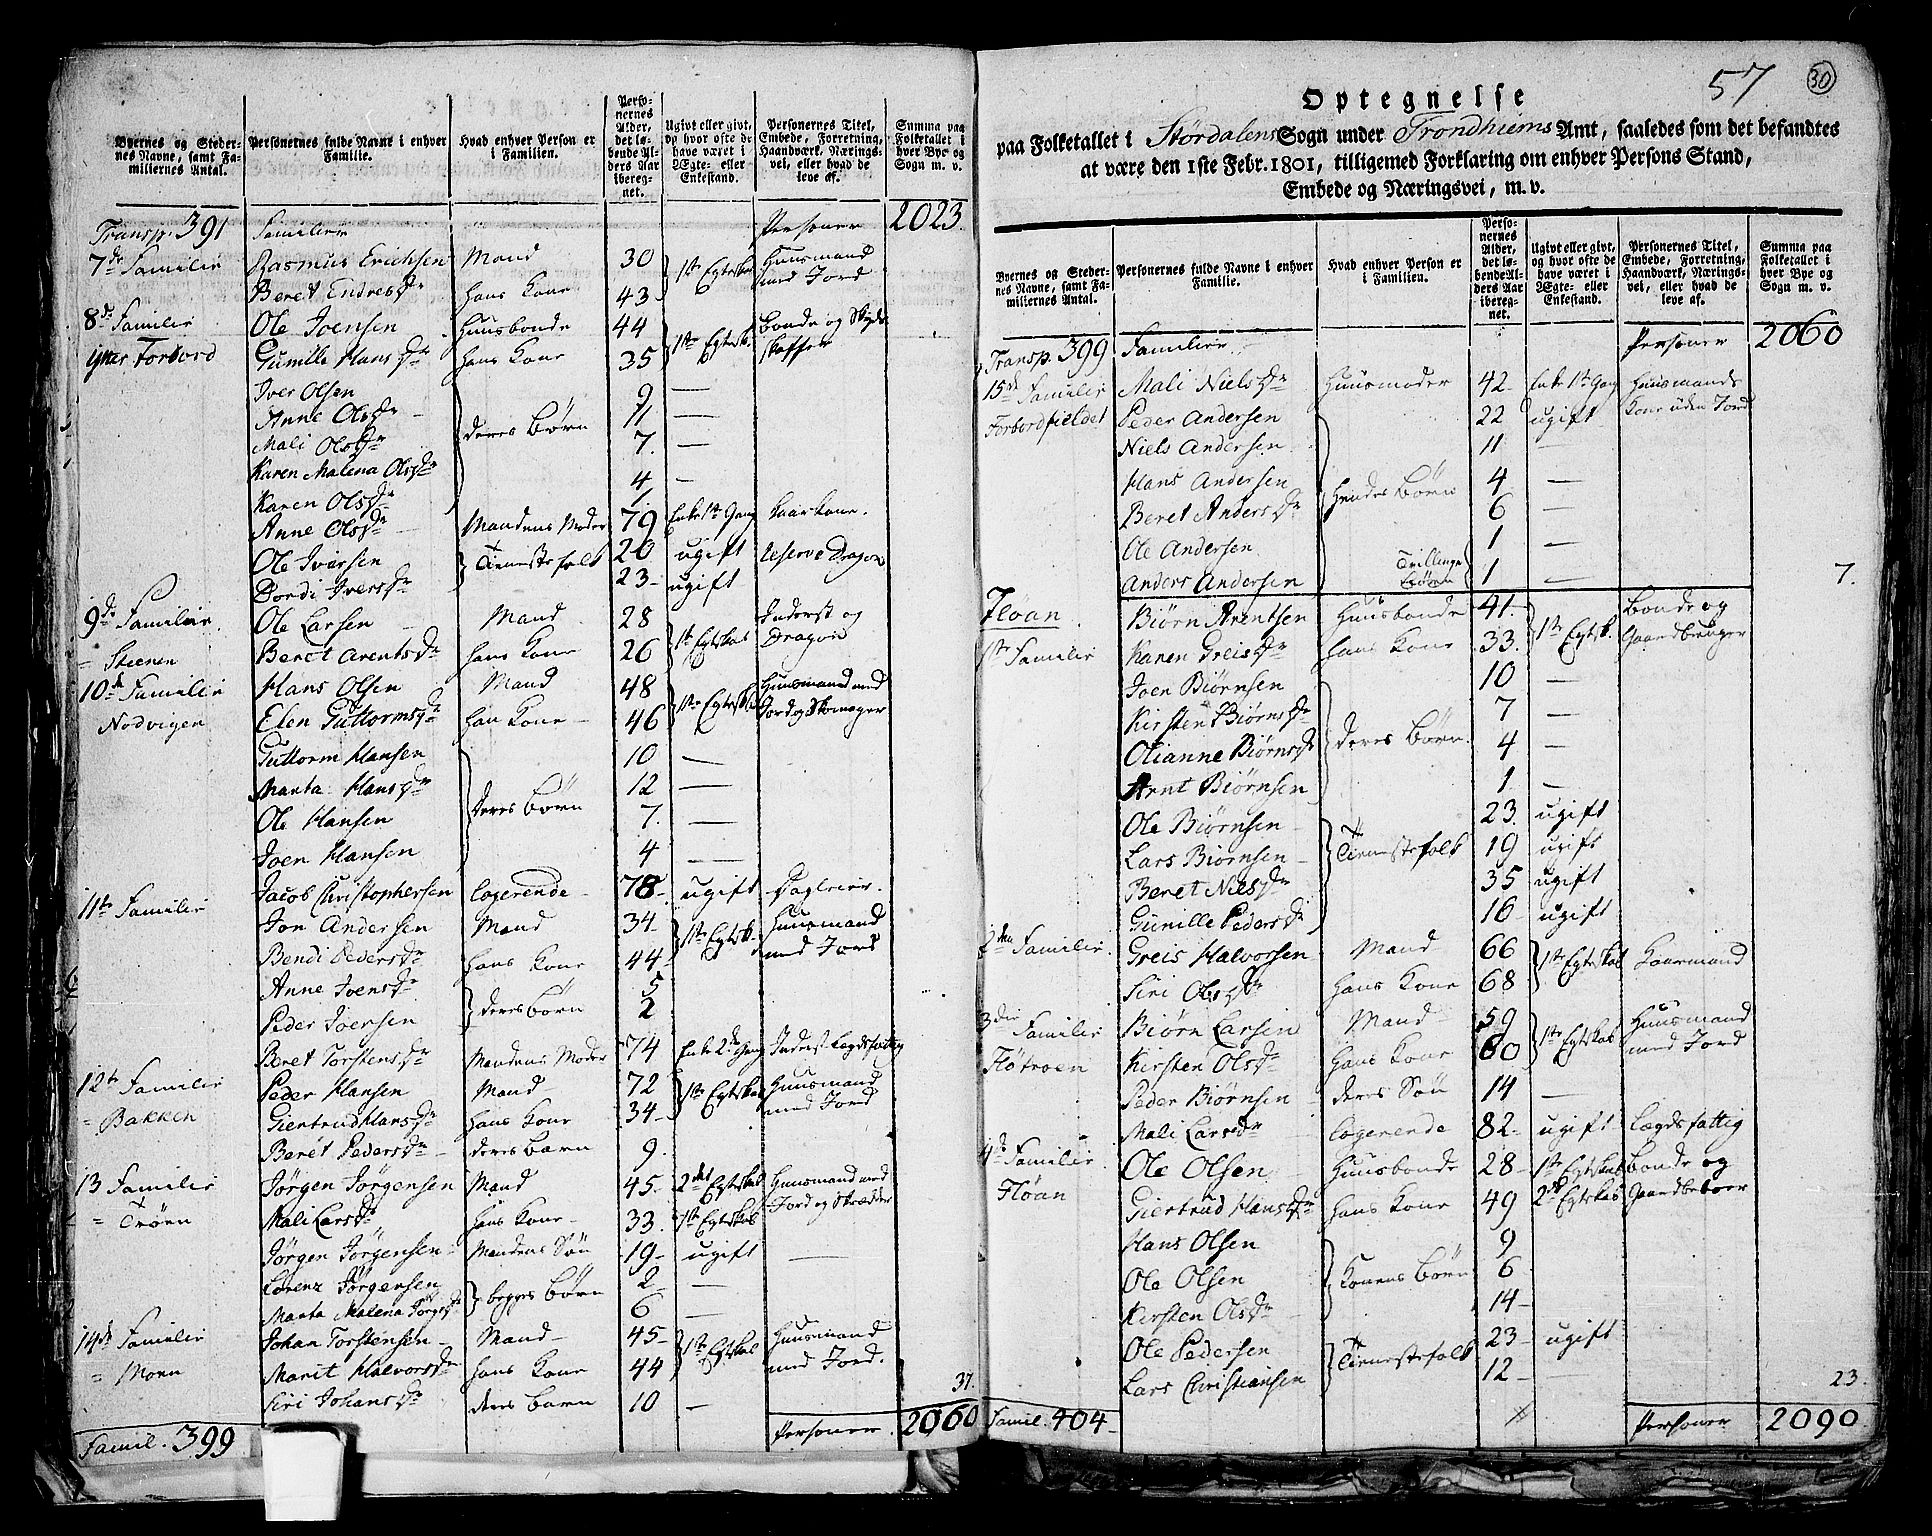 Byernes og Stedernes Navne, samt Familiernes Antal.
Personernes fulde Navne i enhver Familie.
Hvad enhver Person er i Familien.
Personernes Alder, det løbende Alders Aar iberegnet.
Ugivt eller givt, og hvor ofte de have været i Ægte- eller Enkestand.
Personernes Titel, Embede, Forretning, Haandværk, Næringsvei, eller hvad de leve af.
Summa paa Folketallet i hver Bye og Sogn m. v.
Transp. 391 Familier Personer 2023.
7de Familie Rasmus Erichsen Mand 30 1ste Egtesk. Huusmand
Beret Endresdr hans Kone 43 med Jord
8de Familie Ole Joensen Huusbonde 44 1ste Egtesk. Bonde og Skyds
Forbord Gunille Hansdr hans Kone 35 skaffer
Iver Olsen 9 —
Anne Olsdr deres Børn 11 —
Mali Olsdr 7. —
Karen Malena Olsdr 4 —
Karen Olsdr 1
Anne Olsdr Mandens Moder 79 Enke 1ste Gang
Ole Iversen Tienestefolk 20 ugift Reserve Dragon
Dordi Iversdr 23 - ugift
9de Familie Ole Larsen Mand 28 1ste Egteskab Inderst og
Steenen Beret Arentsdr hans Kone 26 Dragon
10de Familie Hans Olsen Mand 48 1ste Egteskab Huusmand med
Nodvigen Elen Guttormsdr han Kone - 46 Jord og Skomager
Guttorm Hansen 10 —
Marta Hansdr deres Børn 12 —
Ole Hansen 7. —
Joen Hansen 4 —
Jacob Christophersen Logerende - 78 - ugift Dagleier.
11te Familie Jon Andersen Mand 34 - 1ste Egtesk. Huusmand
Bendi Pedersdr hans Kone 44 - med Jord
Anne Joensdr deres Børn 5
Peder Joensen 2
Beret Torstensdr Mandens Moder 74 Enke 2den Gang Inderst Lægdsfattig
12te Familie Peder Hansen Mand 72 1ste Egteskab Huusmand
= Bakken Giertrud Hansdr hans Kone 34 - med Jord
Beret Pedersdr deres Barn 9.
13 Familie Jørgen Jørgensen Mand 45 - 2det Egteskab Huusmand med
= Trøen Mali Larsdr hans Kone - 33. 1ste Egteskab Jord og Skrædder
Jørgen Jørgensen - Mandens Søn 19 - ugift —
Lorenz Jørgensen begges Børn 2 —
Marta Malena Jørgsdr 6 —
14de Familie Johan Torstensen - Mand - 45 - 1ste Egteskab Huusmand
= Moen Marit Halvorsdr hans Kone 44 med Jord.
Siri Johansdr deres Barn 10 — 37.
Famil. 399 Personer. 2060
57 30
Optegnelse
paa Folketallet i Størdalens Sogn under Trondhiems Amt, saaledes som det befandtes
at være den 1ste Febr. 1801, tilligemed Forklaring om enhver Persons Stand,
Embede og Næringsvei, m. v.
Byernes og Stedernes Navne, samt Familiernes Antal.
Personernes fulde Navne i enhver Familie.
Hvad enhver Person er i Familien.
Personernes Alder, det løbende Alders Aar iberegnet.
Ugivt eller givt, og hvor ofte de have været i Ægte- eller Enkestand.
Personernes Titel, Embede, Forretning, Haandværk, Næringsvei, eller hvad de leve af.
Summa paa Folketallet i hver Bye og Sogn m. v.
Transp. 399 Familier Personer 2060
15de Familie Mali Nielsdr Huusmoder 42 - Enke 1ste Gang Huusmands
Forbordfieldet Peder Andersen 22 ugift Kone uden Jord
Niels Andersen 11 —
Hans Andersen Hendes Børn 4 —
Beret Andersdr 6 —
Ole Andersen Tvillinge 1 —
Anders Andersen Børn 1 — 7.
Fløan Biørn Arentsen Huusbonde 41 - 1ste Egtesk. Bonde og
1ste Familie Karen Greisdr hans Kone 33. Gaardbruger
Joen Biørnsen 10 —
Kirsten Biørnsdr deres Børn 7 —
Olianne Biørnsdr 4 —
Arnt Biørnsen 1 —
Ole Biørnsen 23. ugift
Lars Biørnsen Tienestefolk 19 ugift
Beret Nilsdr 35 ugift
Gunille Pedersdr 16 - ugift
2den Familie. Greis Halvorsen Mand 66 1ste Egteskab Kaarmand
Siri Olsdr hans Kone 68
3die Familie Biørn Larsen Mand 59 1ste Egteskab Huusmand
Fløtroen Kirsten Olsdr hans Kone 60 med Jord
Peder Biørnsen deres Søn 14 —
Mali Larsdr Logerende 82 - ugift Lægdsfattig
4de Familie Ole Olsen Huusbonde 28 - 1ste Egteskab Bonde og
Fløan Giertrud Hansdr hans Kone 49 2det Egteskab Gaardbeboer
Hans Olsen 9
Ole Olsen Konens Børn 6
Kirsten Olsdr 14 -
Ole Pedersen Tienestefolk 23 - ugift
Lars Christiansen 12 — 23.
Famil. 404 - Personer 2090.